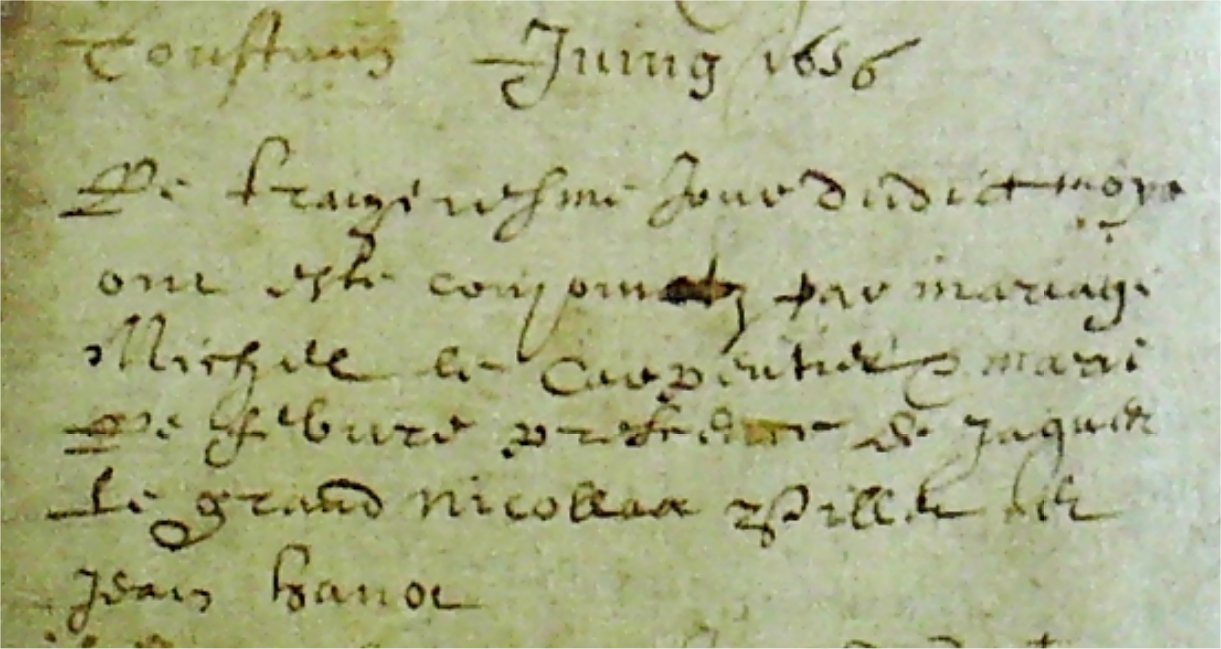 Toustain Juing 1656
Le traiziesme Jour dudict moys
ont esté conjoinctz par mariage
Michel le Carpentier & marie
Le febure presence de Jaques
Le grand Nicollas et
Jean hanot